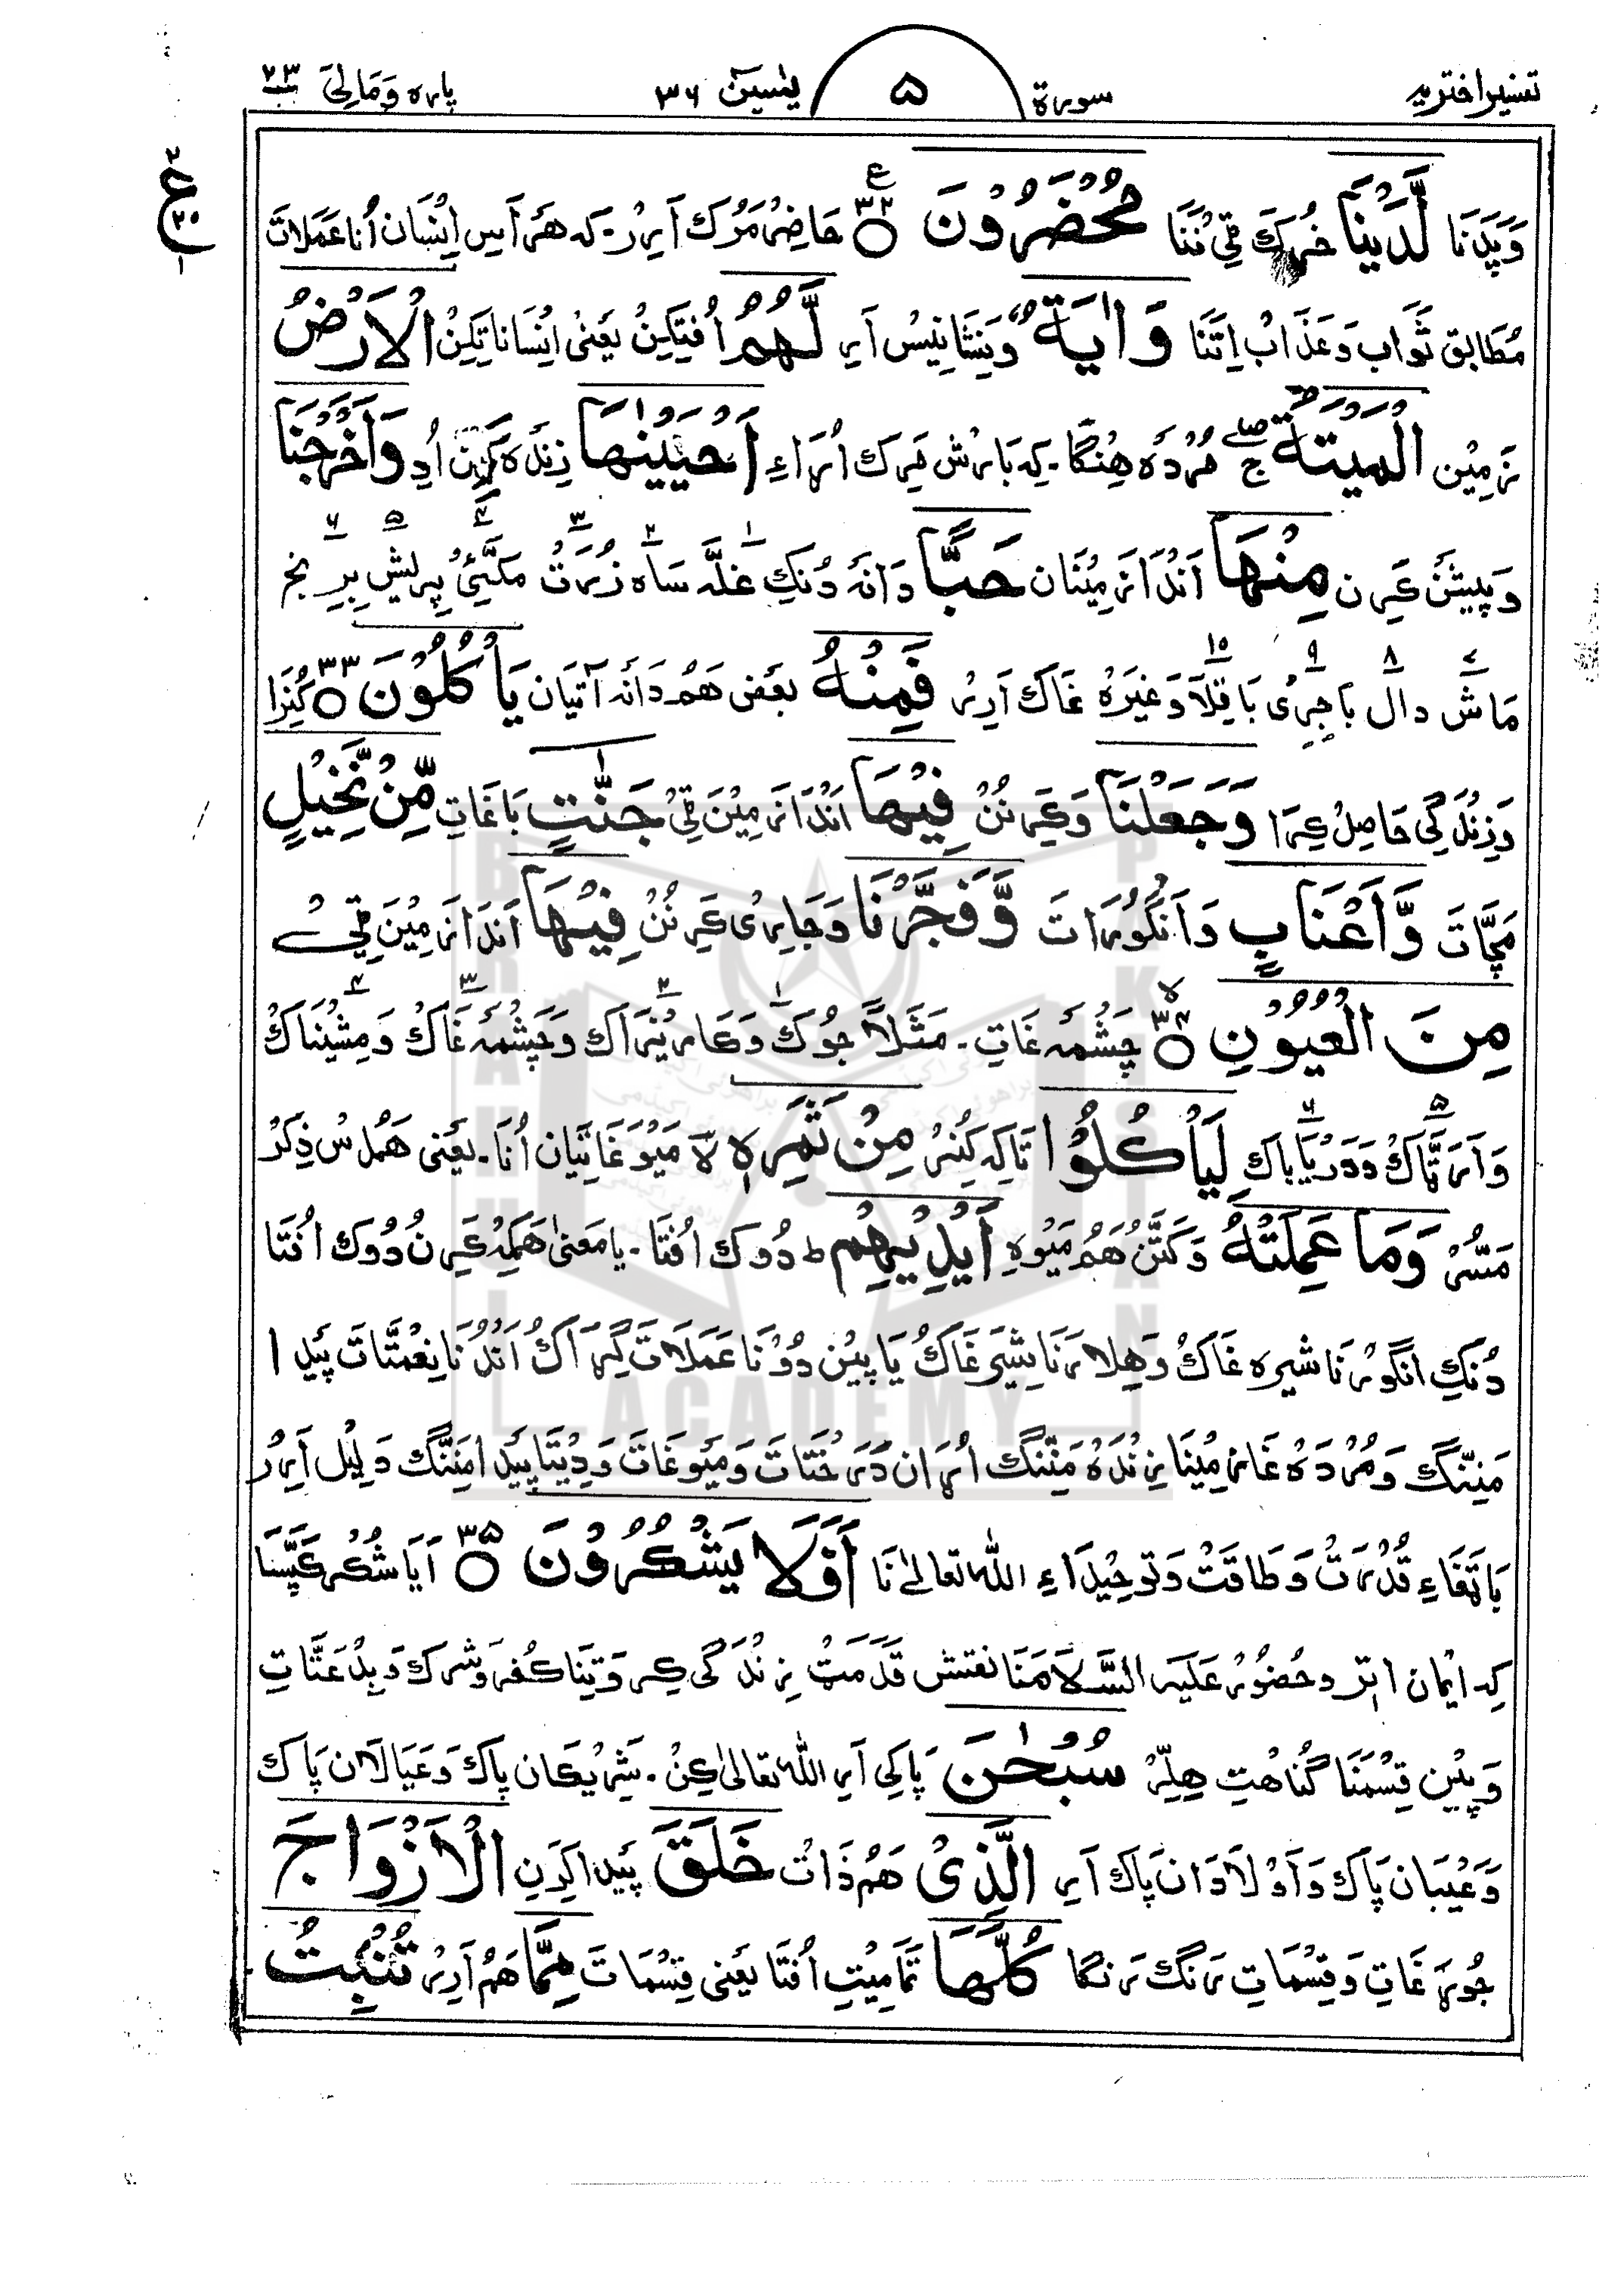 تفسیر اختریہ سورۃ ۵ یٰسین ۳۶ پارہ وَمَا لِیَ ۲۳
ع ۲ ۲۰ ۱
وَپَدَنَا لَّدَیْنَا خُڑک ٹی نَنَا مُحْضَرُوْنَ ۝۳۲ ع حَاضِر مَرُک اَرِیر۔ کہ ھَر اَسِ اِنْسَان اُنا عَمَلاتَ
مُطَابِق ثَوَاب وَعَذَابْ اِتَنَا وَاٰیَةٌ وَنِشَانِیْس اَرِ لَّهُمُ اُفْتِکِنْ یَعْنِیْ اِنْسَانَا تِکِنْ الْاَرْضُ
زَمِیْن الْمَیْتَةُ ج مُرْدَہ ھِنْگَا۔ کِہ بَارِش خَرک اُڑاءِ اَحْیَیْنٰهَا زِنْدَہ کَرِن اُدِ وَاَخْرَجْنَا
وَپیشَنْ کَرِن مِنْهَا اَنْدَا زَمِیْنَان حَبًّا دَانَہ دُنکِ غَلَّہ سَاہ زُرَتْ مَکَّئِیْ پِرِیش بِرِنج
مَاش دال بَاجِرِیْ بَاقِلَا وَغیَرہْ غَاک اَرِیر فَمِنْهُ بعَض ھَمُ دَانَہ آتیَان یَاْكُلُوْنَ ۝۳۳ کُنِرَا
وَزِنْدَگی حَاصِلْ کِرَا وَجَعَلْنَا وَکَرِنُنْ فِیْهَا اَنْدَا زَمِیْن ٹی جَنّٰتٍ بَاغَاتِ مِّنْ نَّخِیْلٍ
مَچّاتَ وَّاَعْنَابٍ وَاَنگُورَاتَ وَّفَجَّرْنَا وَجَارِیْ کَرِنُنْ فِیْهَا اَنْدَا زَمِیْن ٹی
مِنَ الْعُیُوْنِ ۝۳۴ لا چَشْمَہ غَاتِ۔ مَثَلاً جُوک وَکَارِیْزَاک وَچَشْمَہ غَاکْ وَمِشِیْنَاکْ
وَاَرَہٹَاکْ وَدَرْیَاباک لِیَاْكُلُوْا تَاکِہ کُنِر مِنْ ثَمَرِهٖ لا مَیْوَغَاتِیَان اُنَا۔ یَعْنِی ھَمُل سْ ذِکَرْ
مَسُّرْ وَمَا عَمِلَتْهُ وَکَتَنْ ھَمُ مَیْوہِ اَیْدِیْهِمْ ط دُوک اُفْتَا۔ یا مَعْنٰی ھَمکِہ کَرِنْ دُوک اُفْتَا
دُنکِ انگُورْنَا شیرہ غَاکْ وَھِلارَنَا شِیَرغَاکْ یَا پیْن دُوْنَا عَمَلَات گِراکْ اَنْدُنَا نِعْمَتَّاتَ پَیدا
مَنِنّگ وَمُرْدَہ غَا زمِیْنَا زِنْدَہ مَنِنّگ اُڑان دَرَخْتَاتَ وَمَیْوغَاتَ وَدِیْتَا پَیدا مَنِنّگ دَلِیْل اَرِیر
بَاتَفَاءِ قُدْرَتْ وَطَاقَتْ وَتَوحِیْدَاءِ اللہ تعالیٰ نَا اَفَلَا یَشْكُرُوْنَ ۝۳۵ آیَا شُکْر کَپَّسَا
کِہ اِیْمَان اتِر وحُضُوْر عَلَیہ السَّلَامَنَا نَقش قَدَمَتْ زِنْدَگی کِر وَتِنَا کُفر وَشِرک وَبِدْعَتَاتِ
وَپِیْن قِسْمَنَا گُنَاھْتِ ھِلِّرْ سُبْحٰنَ پَاکِی اَرِ اللہ تعالیٰ کِنْ۔ شَرِیْکَان پَاک وَعَیَالَان پَاک
وَعَیْبَان پَاک وَاَوْلَادَان پَاک اَرِ الَّذِیْ ھَم ذَاتْ خَلَقَ پَیدا کَرِنِ الْاَزْوَاجَ
جُوڑہ غَاتِ وَقِسْمَاتِ رَنگ رَنگا كُلَّهَا تَمَامِیْتِ اُفْتَا یَعْنِی قِسْمَاتَ مِمَّا ھَمُ اَرِیر تُنْۢبِتُ
BRAHUI ACADEMY PAKISTAN